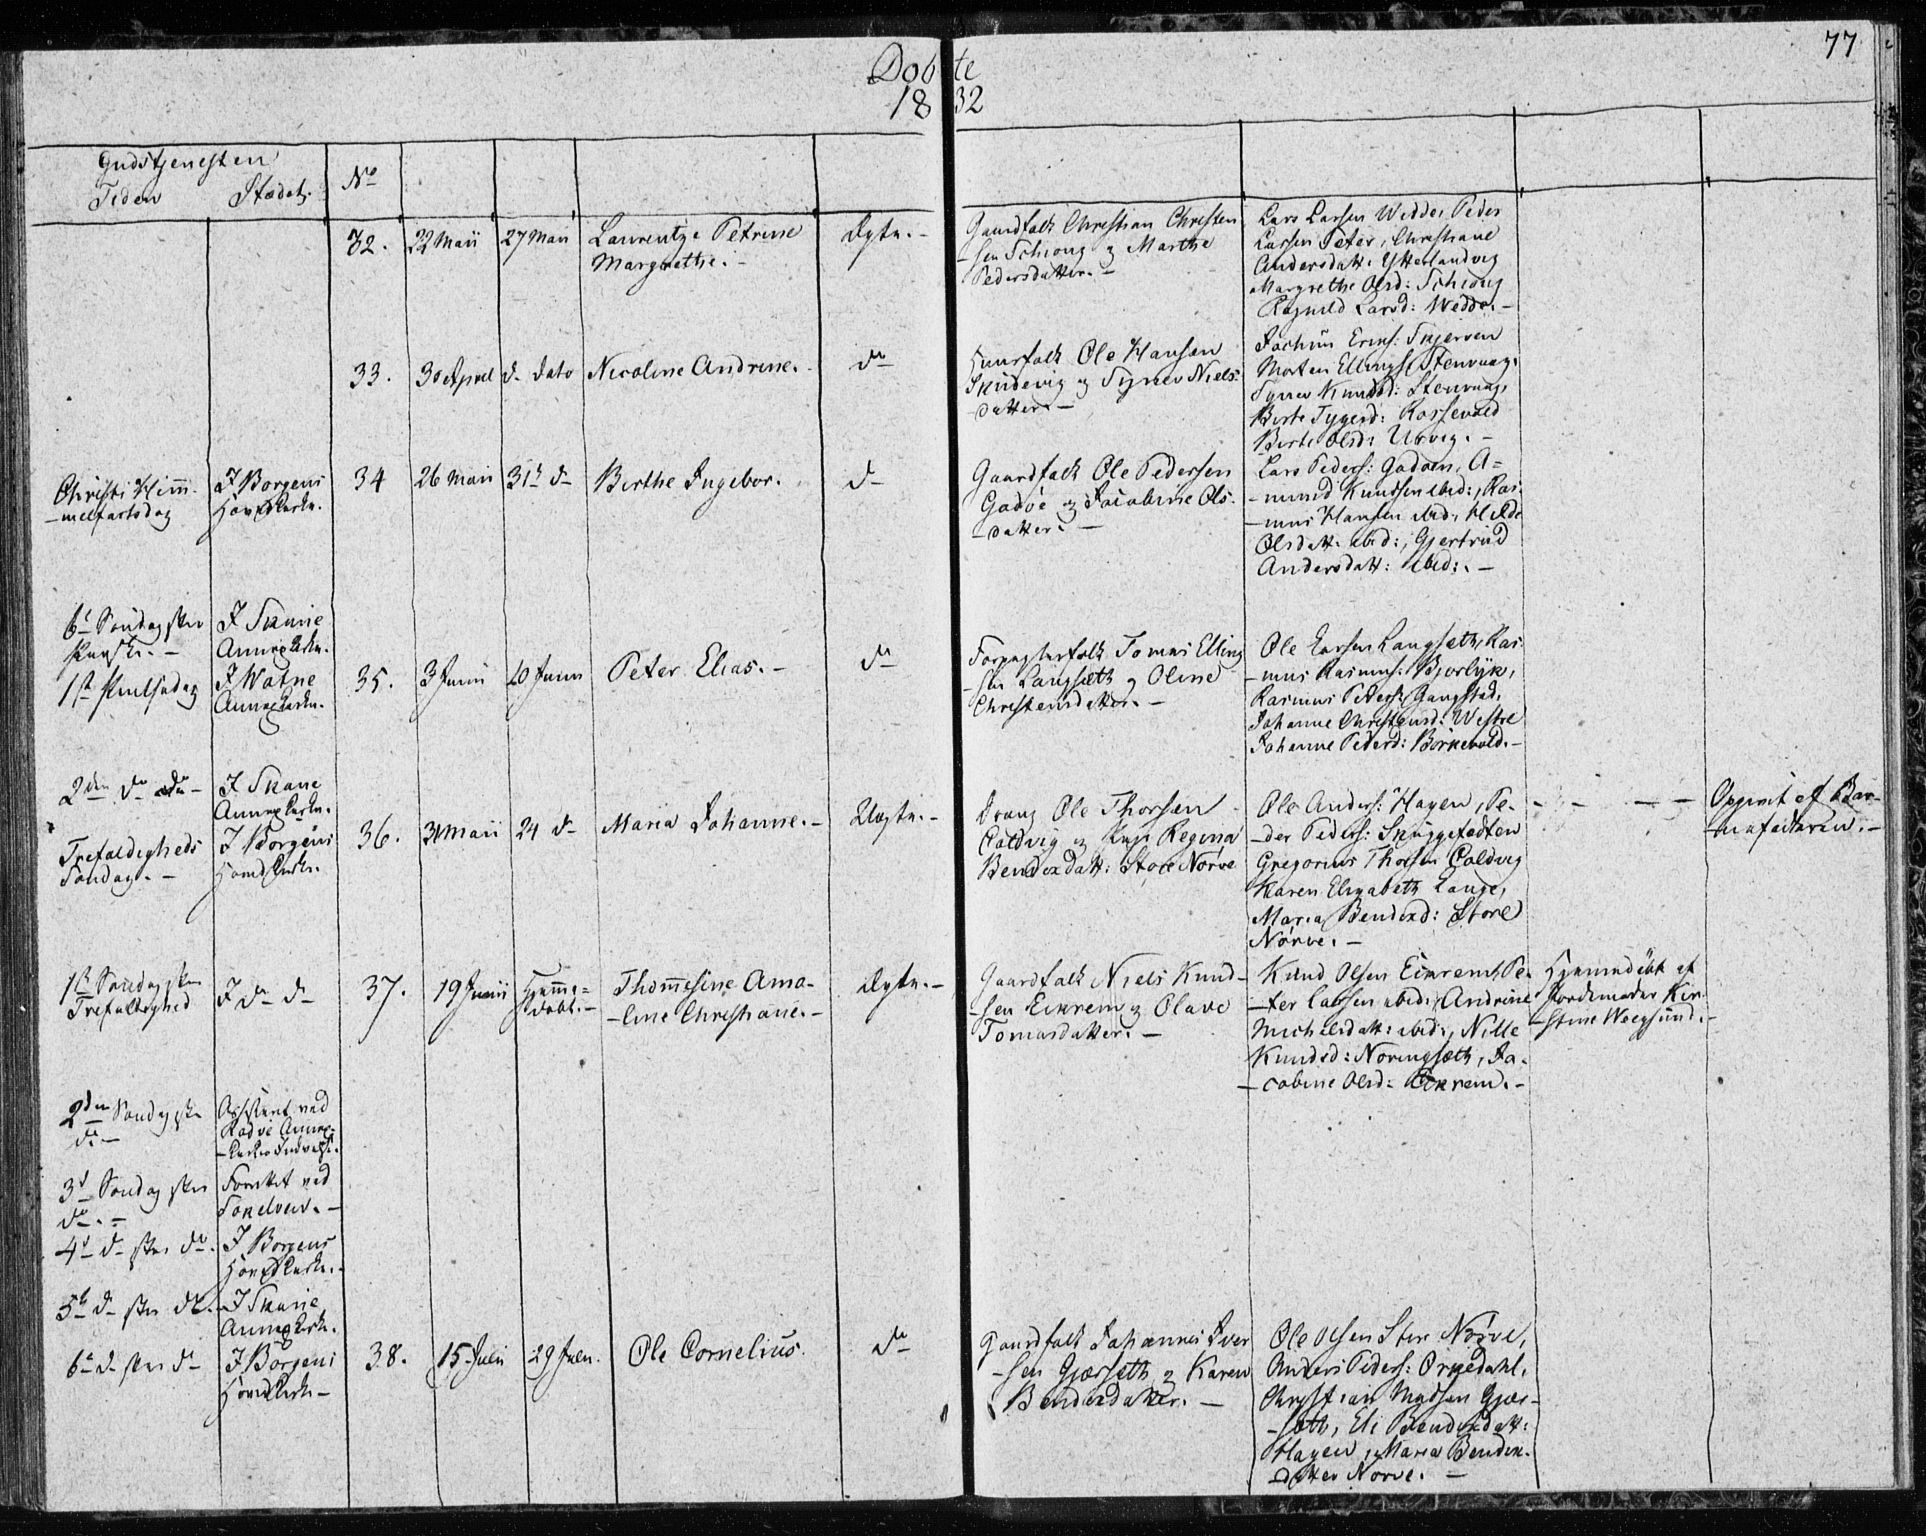 Dobte
1832
77
Gudstjenesten
Tiden Stædet.
No
32. 22 Maii 27 Maii Laurentze Petrine
Margrethe. - Ægte. -
Gaardfolk Christian Christen
-sen Schiong og Marthe
Pedersdatter. -
Lars Larsen Wedde, Peder
Larsen Peter, Christiane
Andersdatt. Ytterlandvig
Margrethe Olsd: Schiong
Ragnild Larsd: Wedde. -
33. 30 April d. dato Nicoline Andrine. do
Huusfolk Ole Hansen
Skudevig og Synev Niels-
datter. -
Jochum Eriks:
Morten Ellings: Stenvaag,
Synev Knudsd: Stenvaag,
Berte Rossevold
Berte Olsd: Urvig. -
Christi Him-
-melfartsdag
I Borgens
Hovedkirke.
34 26 Maii 31te d- Berthe Ingebor. d-
Gaardfolk Ole Pedersen
Gadøe og Jacobine Ols-
datter. -
Lars Peders: Gadøen, A-
-mund Knudsen ibid:, Ras-
-mus Hansen ibid:, Hilde
Olsdatt. ibid:, Gjertrud
Andersdatt: ibid:. -
6te Søndag efter
Paaske. -
I Skuue
Annexkirke.
1ste Pintsedag
I Watne
Annexkirke.
35. 3 Junii 10 Junii Peter Elias. - do
Forpagterfolk Tomas Elling
-sen Langsæth og Oline
Christensdatter. -
Ole Larsen Langsæth, Ras-
-mus Rasmus: Bjorlyk,
Rasmus Peders: Gangstad,
Johanne Christensd: Westre
Johanne Pedersd: Børkevold. -
2den do do -
I Skuue
Annexkirke.
Trefoldigheds
Søndag. -
I Borgens
Hovedkirke.
36. 31 Maii 24 d- Maria Johanne. - Uægte. -
Dreng Ole Thorsen
Coldvig og Pige Regina
Bendixdatt: Store Nørve
Ole Anders: Hagen, Pe-
-der Peders: Skuggetofften
Gregorius Thorsen Coldvig
Karen Elisabeth Lange,
Maria Bendixd: Store
Nørve. -
Opgivet af Bar-
-nefaderen. -
1ste Søndag efter
Trefoldighed
I do d-
37. 19 Junii Hjemme-
døbt. - Thommesine Ama-
-line Christiane. - Ægte. -
Gaardfolk Niels Knud-
-sen Eikrem og Olave
Tomasdatter. -
Knud Olsen Eikrem, Pe-
-ter Larsen ibid:, Andrine
Michelsdatt: ibid:, Nille
Knudsd: Noringsæth, Ja-
-cobine Olsd: Eikrem. -
Hjemmedøbt af
Jordemoder Kir-
-stine Weegsund. -
2den Søndag efter
do -
Assistent ved
Rødve Annex-
-kirkes Indvielse.
3die Søndag efter
do. -
Forrettet ved
4de d- efter do.
I Borgens
Hovedkirke. -
5te d- efter do. -
I Skuue
Annexkirke.
6te d- efter do
I Borgens
Hovedkirke -
38. 15 Julii 29 Julii. Ole Cornelius. do
Gaardfolk Johannes Iver
-sen Gjærsæth og Karen
Bendixdatter. -
Ole Olsen Store Nørve,
Anders Peders: Ørnedahl,
Christian Madsen Gjær-
-sæth, Eli Bendixdatt:
Hagen, Maria Bendix-
datter Nørve. -